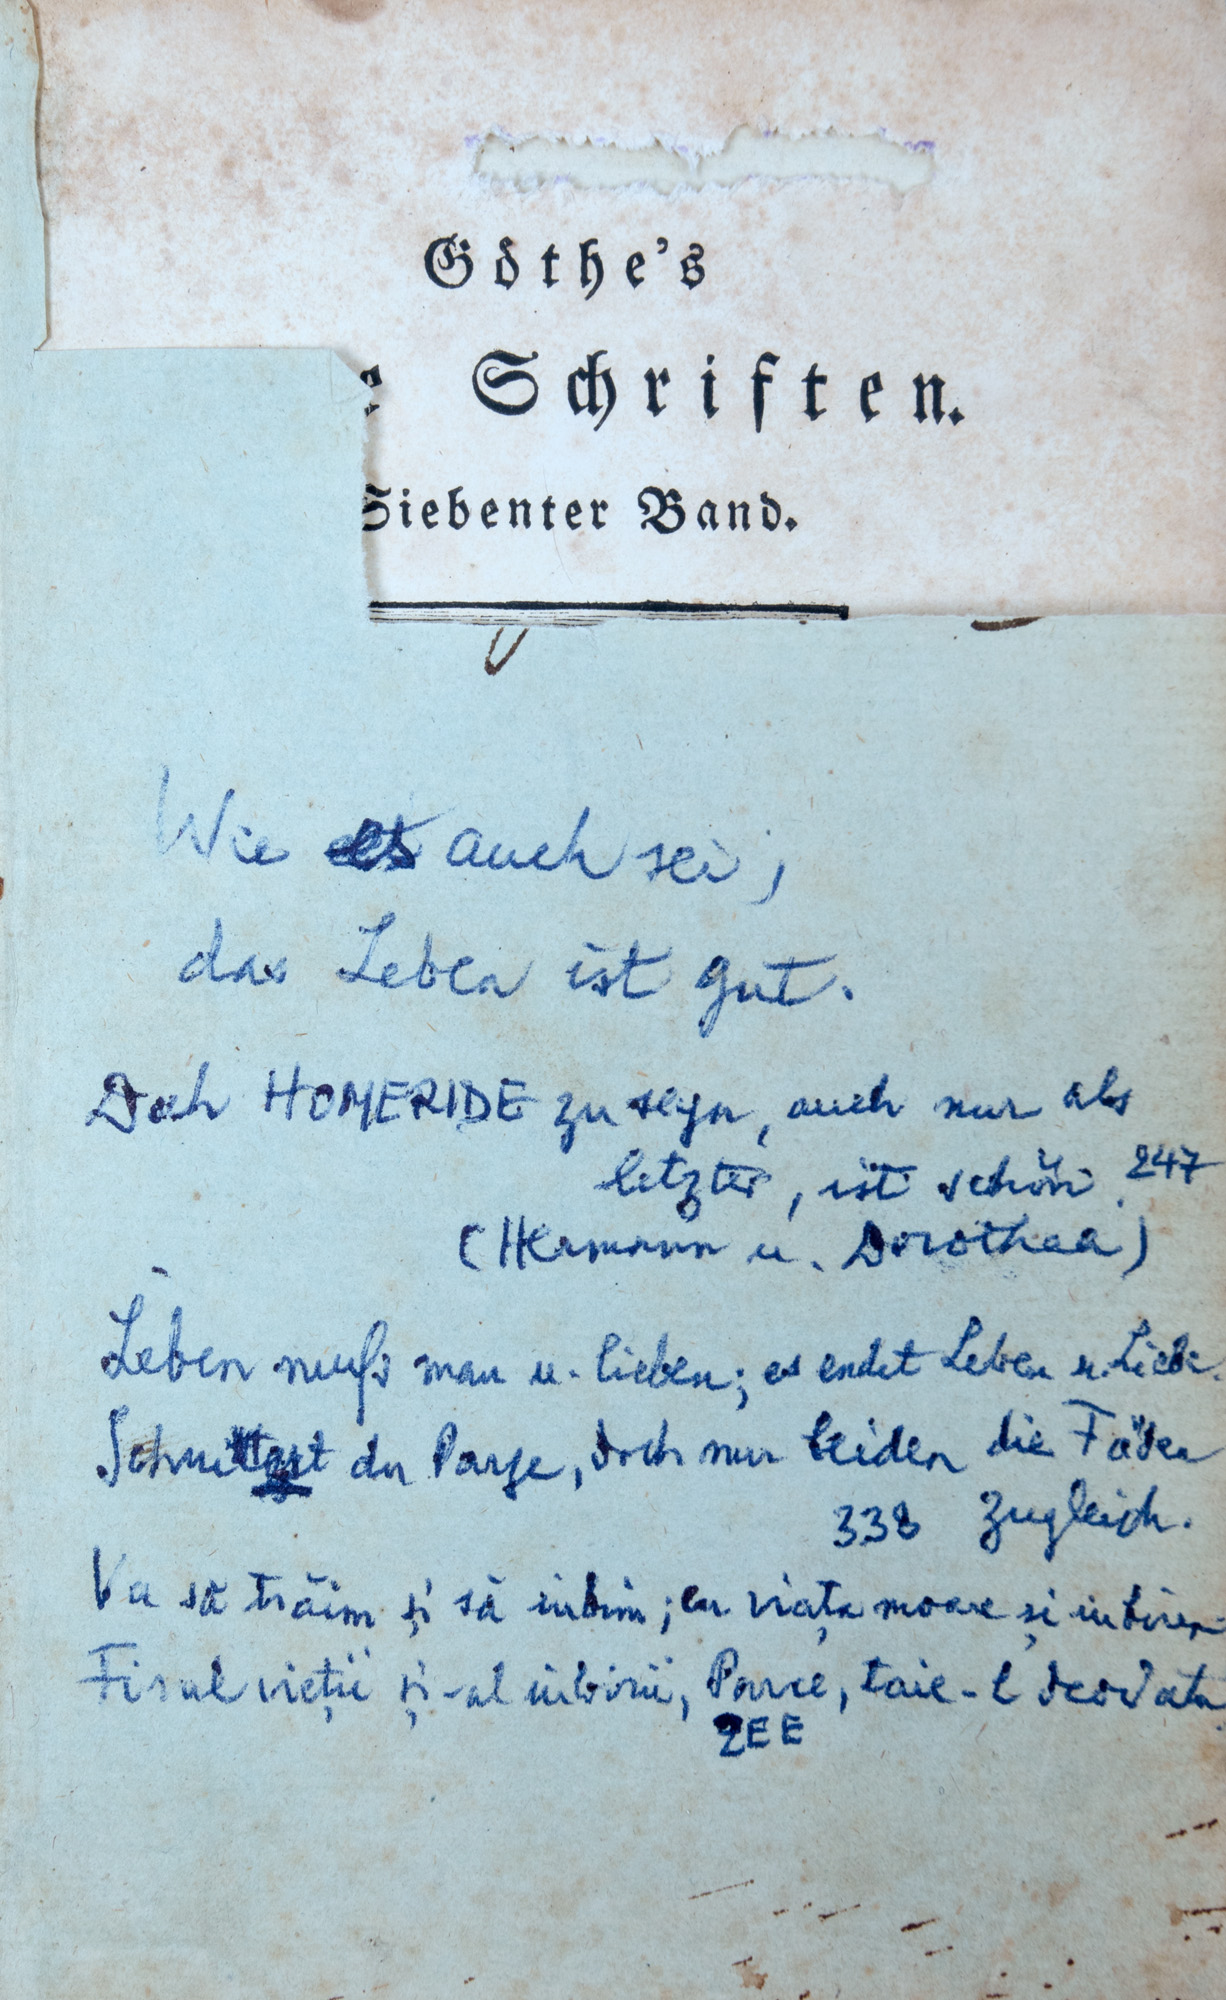 Göthe's
e Schriften.
Siebenter Band.
Wie es auch sei,
das Leben ist gut.
Doch HOMERIDE zu seyn, auch nur als
letzter, ist schön. 247
(Hermann u. Dorothea)
Leben muß man u. lieben; es endet Leben u. Liebe.
Schnittest du Parze, doch nur beiden die Fäden
338 zugleich.
Va să trăim și să iubim; căci viața moare și iubirea
Firul vieții și-al iubirii, Parce, taie-l deodată
ZEE